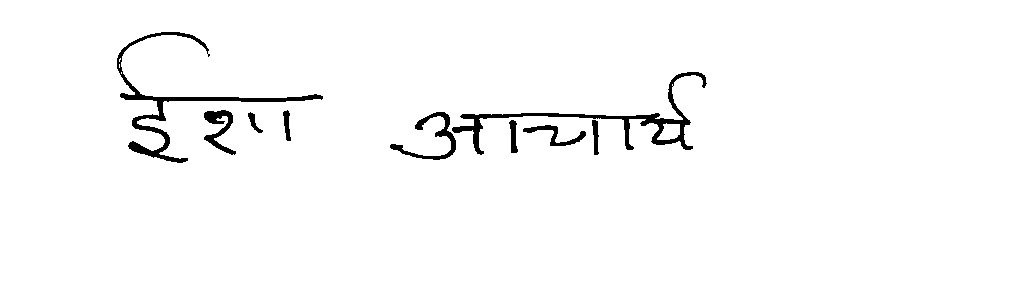 ईशा आचार्य